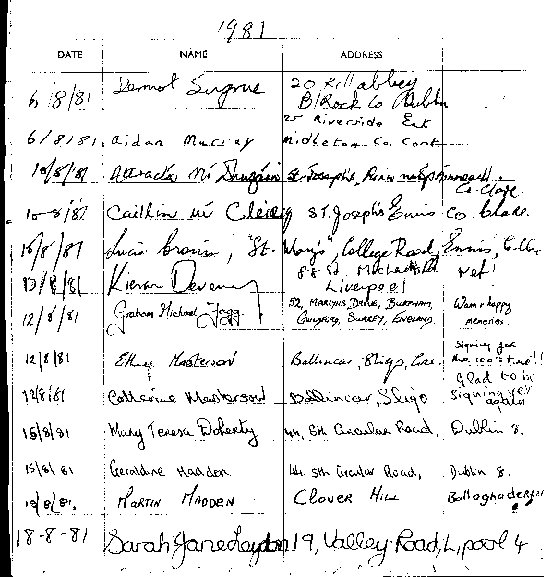 1981
DATE NAME ADDRESS
6/8/81 Dermot 20 Kill abbey
B/Rock Co Dublin
25 Riverside Est
6/8/81. Aidan Murray Midleton Co. Cork
10/8/81 Attracta Ní St. Joseph's,
Co. Clare
10-8/81 Caitlín ní St. Joseph's Ennis Co. Clare.
10/8/81 "St. Mary's", College Road, Ennis, Co. Clare
88 St.
12/8/81 Kieran Devenny Liverpool
12/8/81 Graham Michael 52, Marlyns Drive, Burpham, Warm & happy
Guildford, Surrey, England. memories.
Signing for
time!!
12/8/81 Masterson Ballincar, Sligo, Eire.
Glad to be
12/8/81 Catherine Masterson Ballincar, Sligo signing yet
again
15/8/81 Mary Teresa Doherty 44, Sth Circular Road, Dublin 8.
15/8/81 Geraldine Madden 44. Sth Circular Road, Dublin 8.
15/8/81. Martin Madden Clover Hill Ballaghaderreen
18-8-81 Sarah Jane Leydon 19, Valley Road, L,pool 4